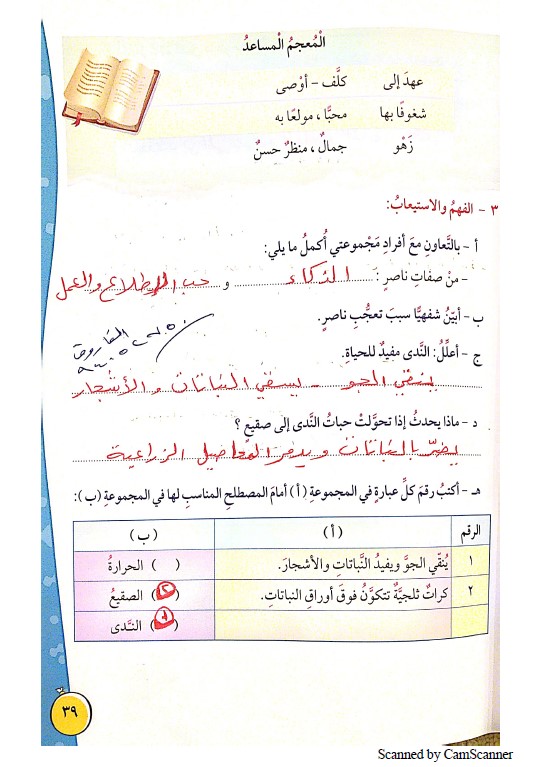 الْمُعجمُ الْمساعدُ
عهدَ إلى كلَّف - أوْصى
شغوفًا بها محبًّا، مولعًا به
زَهْو جمالٌ، منظرٌ حسنٌ
٣ - الفهمُ والاستيعابُ:
أ - بالتَّعاونِ معَ أفرادِ مَجْموعتي أُكملُ ما يلي:
- منْ صفاتِ ناصرٍ: الذكاء و حب الإطلاع والعمل
ب - أبيّنُ شفهيًّا سببَ تعجُّبِ ناصرٍ.
ج - أعلِّلُ: النَّدى مفيدٌ للحياةِ.
ينقي الجو - يسقي النباتات والأشجار
د - ماذا يحدثُ إذا تحوَّلتْ حباتُ النَّدى إلى صقيعٍ ؟
يضرّ بالنباتات ويدمر المحاصيل الزراعية
هـ - أكتبُ رقمَ كلِّ عبارةٍ في المجموعةِ (أ) أمامَ المصطلحِ المناسبِ لها في المجموعةِ (ب):
الرقم (أ) (ب)
١ يُنقّي الجوَّ ويفيدُ النَّباتاتِ والأشجارَ. ( ) الحرارةُ
٢ كراتٌ ثلجيَّةٌ تتكوَّنُ فوقَ أوراقِ النباتاتِ. (٢) الصقيعُ
(١) النـَّدى
٣٩
Scanned by CamScanner